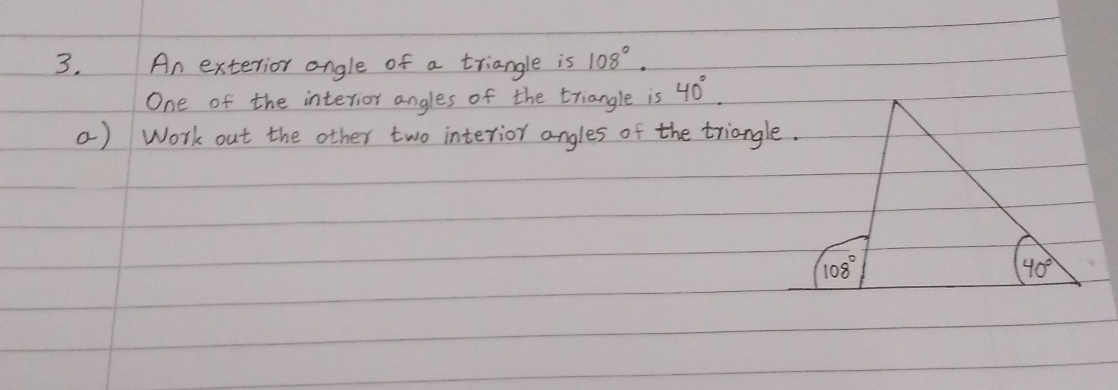 3. An exterior angle of a triangle is 108°.
One of the interior angles of the triangle is 40°.
a) Work out the other two interior angles of the triangle.
108°
40°